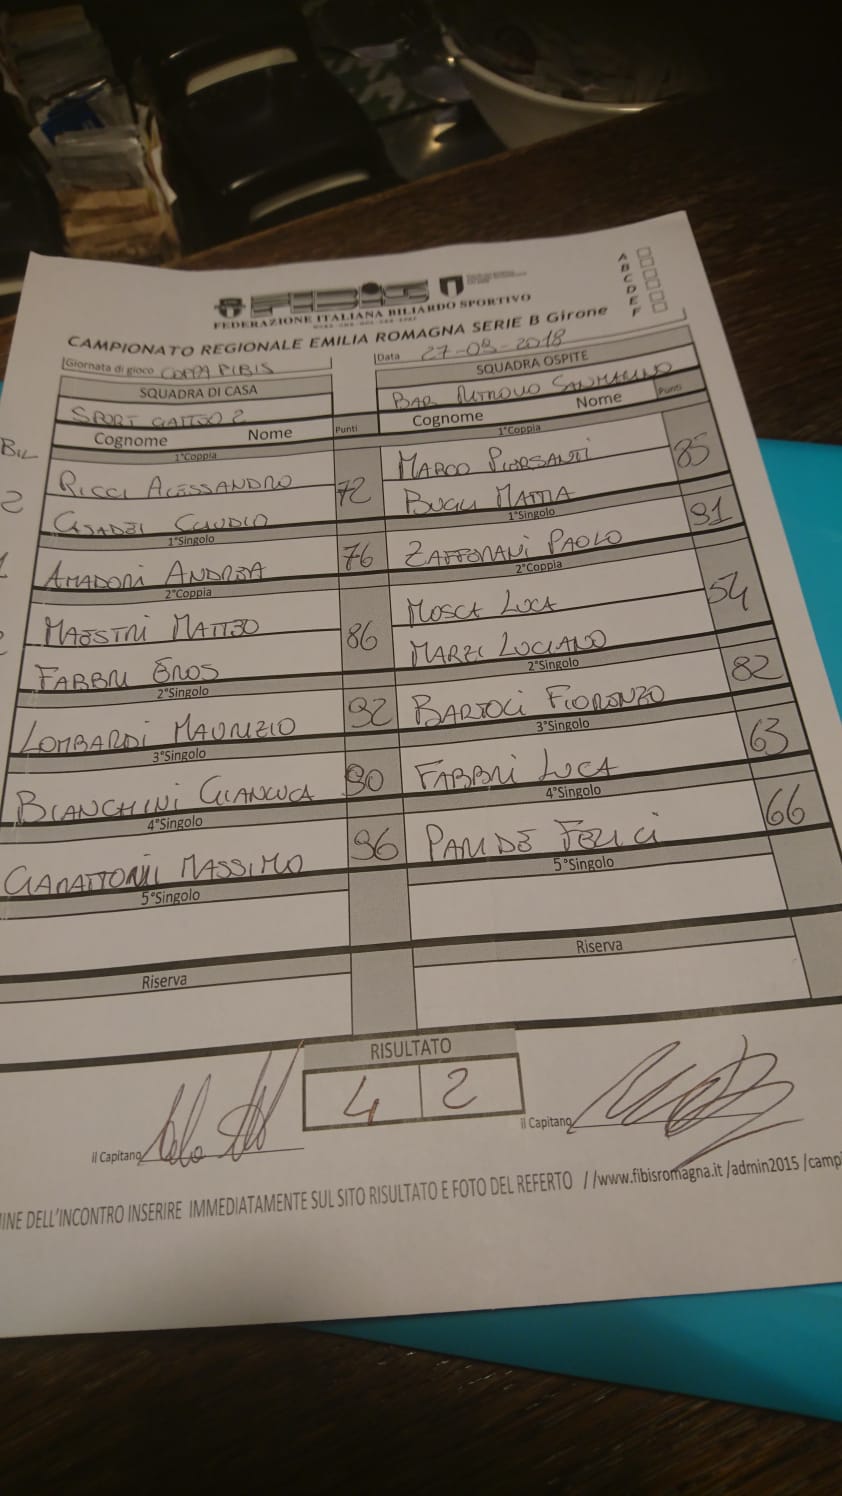 FIBIS
FEDERAZIONE ITALIANA BILIARDO SPORTIVO
CAMPIONATO REGIONALE EMILIA ROMAGNA SERIE B Girone
A
B
C
D
E
F
Giornata di gioco COPPA FIBIS
Data 27-03-2018
SQUADRA DI CASA
SQUADRA OSPITE
SPORT GATTEO 2
BAR RITROVO SANMARINO
Cognome Nome Punti
Cognome Nome Punti
1°Coppia
1°Coppia
RICCI ALESSANDRO
72
MARCO PIERSANTI
85
CASADEI CLAUDIO
BUGLI MATTIA
1°Singolo
1°Singolo
AMADORI ANDREA 76
ZAFFERANI PAOLO 91
2°Coppia
2°Coppia
MAESTRI MATTEO
86
MOSCA LUCA
54
FABBRI EROS
MARZI LUCIANO
2°Singolo
2°Singolo
LOMBARDI MAURIZIO 92
BARTOLI FIORENZO 82
3°Singolo
3°Singolo
BIANCHINI GIANLUCA 90
FABBRI LUCA 63
4°Singolo
4°Singolo
GARATTONI MASSIMO 96
PARIDE FELICI 66
5°Singolo
5°Singolo
Riserva
Riserva
RISULTATO
4 2
il Capitano
il Capitano
MINE DELL'INCONTRO INSERIRE IMMEDIATAMENTE SUL SITO RISULTATO E FOTO DEL REFERTO //www.fibisromagna.it /admin2015 /camp